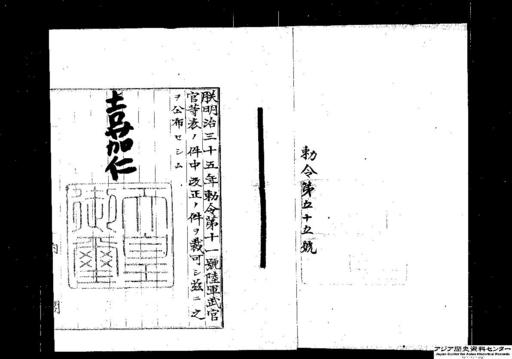 勅令第五十五號
朕明治三十五年勅令第十一號陸軍武官
官等表ノ件中改正ノ件ヲ裁可シ茲ニ之
ヲ公布セシム
嘉仁
天皇
御璽
アジア歴史資料センター
Japan Center for Asian Historical Records